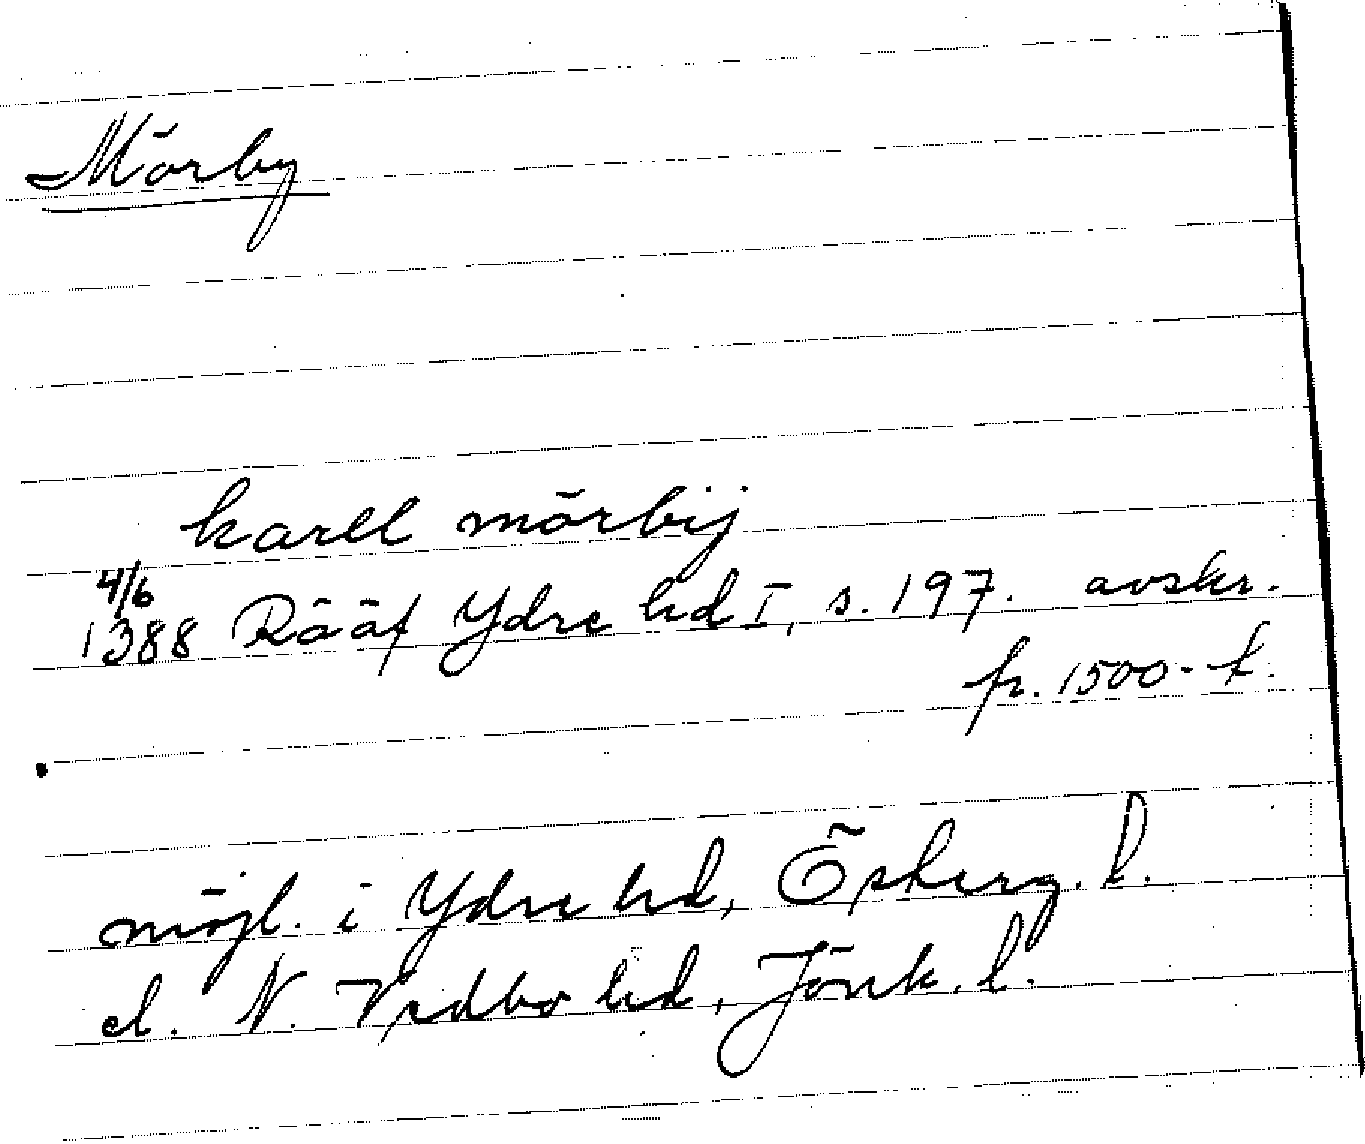 Mörby
karll mörbij
4/6
1388 Rääf Ydre hd I, s. 197. avskr.
fr. 1500-t.
möjl. i Ydre hd, Östergötl. l.
el. N. Vedbo hd, Jönk. l.